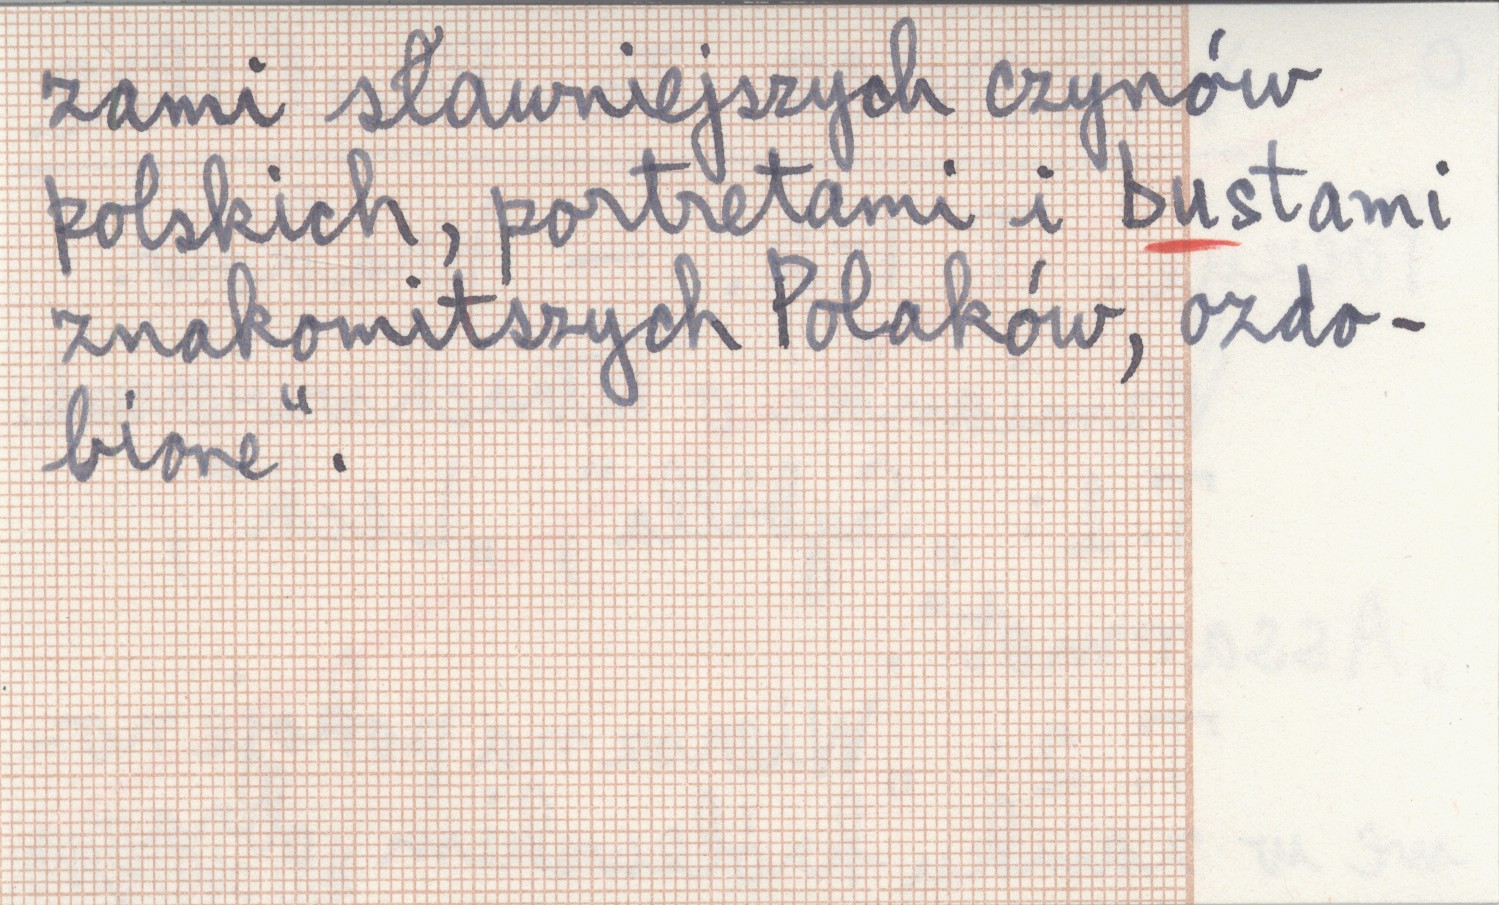 zami sławniejszych czynów
polskich, portretami i bustami
znakomitszych Polaków, ozdo-
bione".